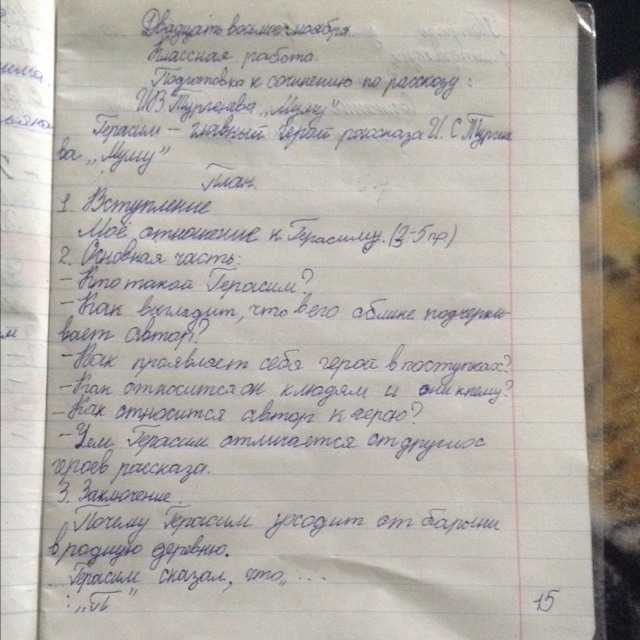 Двадцать восьмое ноября.
Классная работа.
Подготовка к сочинению по рассказу:
И.С Тургенева „Муму"
Герасим – главный герой рассказа И. С Турге
ва „Муму"
План.
1. Вступление
Моё отношение к Герасиму. (3-5 пр)
2. Основная часть:
- Кто такой Герасим?
- Как выглядит, что в его облике подчерки-
вает автор?
- Как проявляет себя герой в поступках?
- Как относится он к людям и они к нему?
- Как относится автор к герою?
- Чем Герасим отличается от других
героев рассказа.
3. Заключение.
Почему Герасим уходит от барыни
в родную деревню.
Герасим сказал, что„ ...
: „П "
15